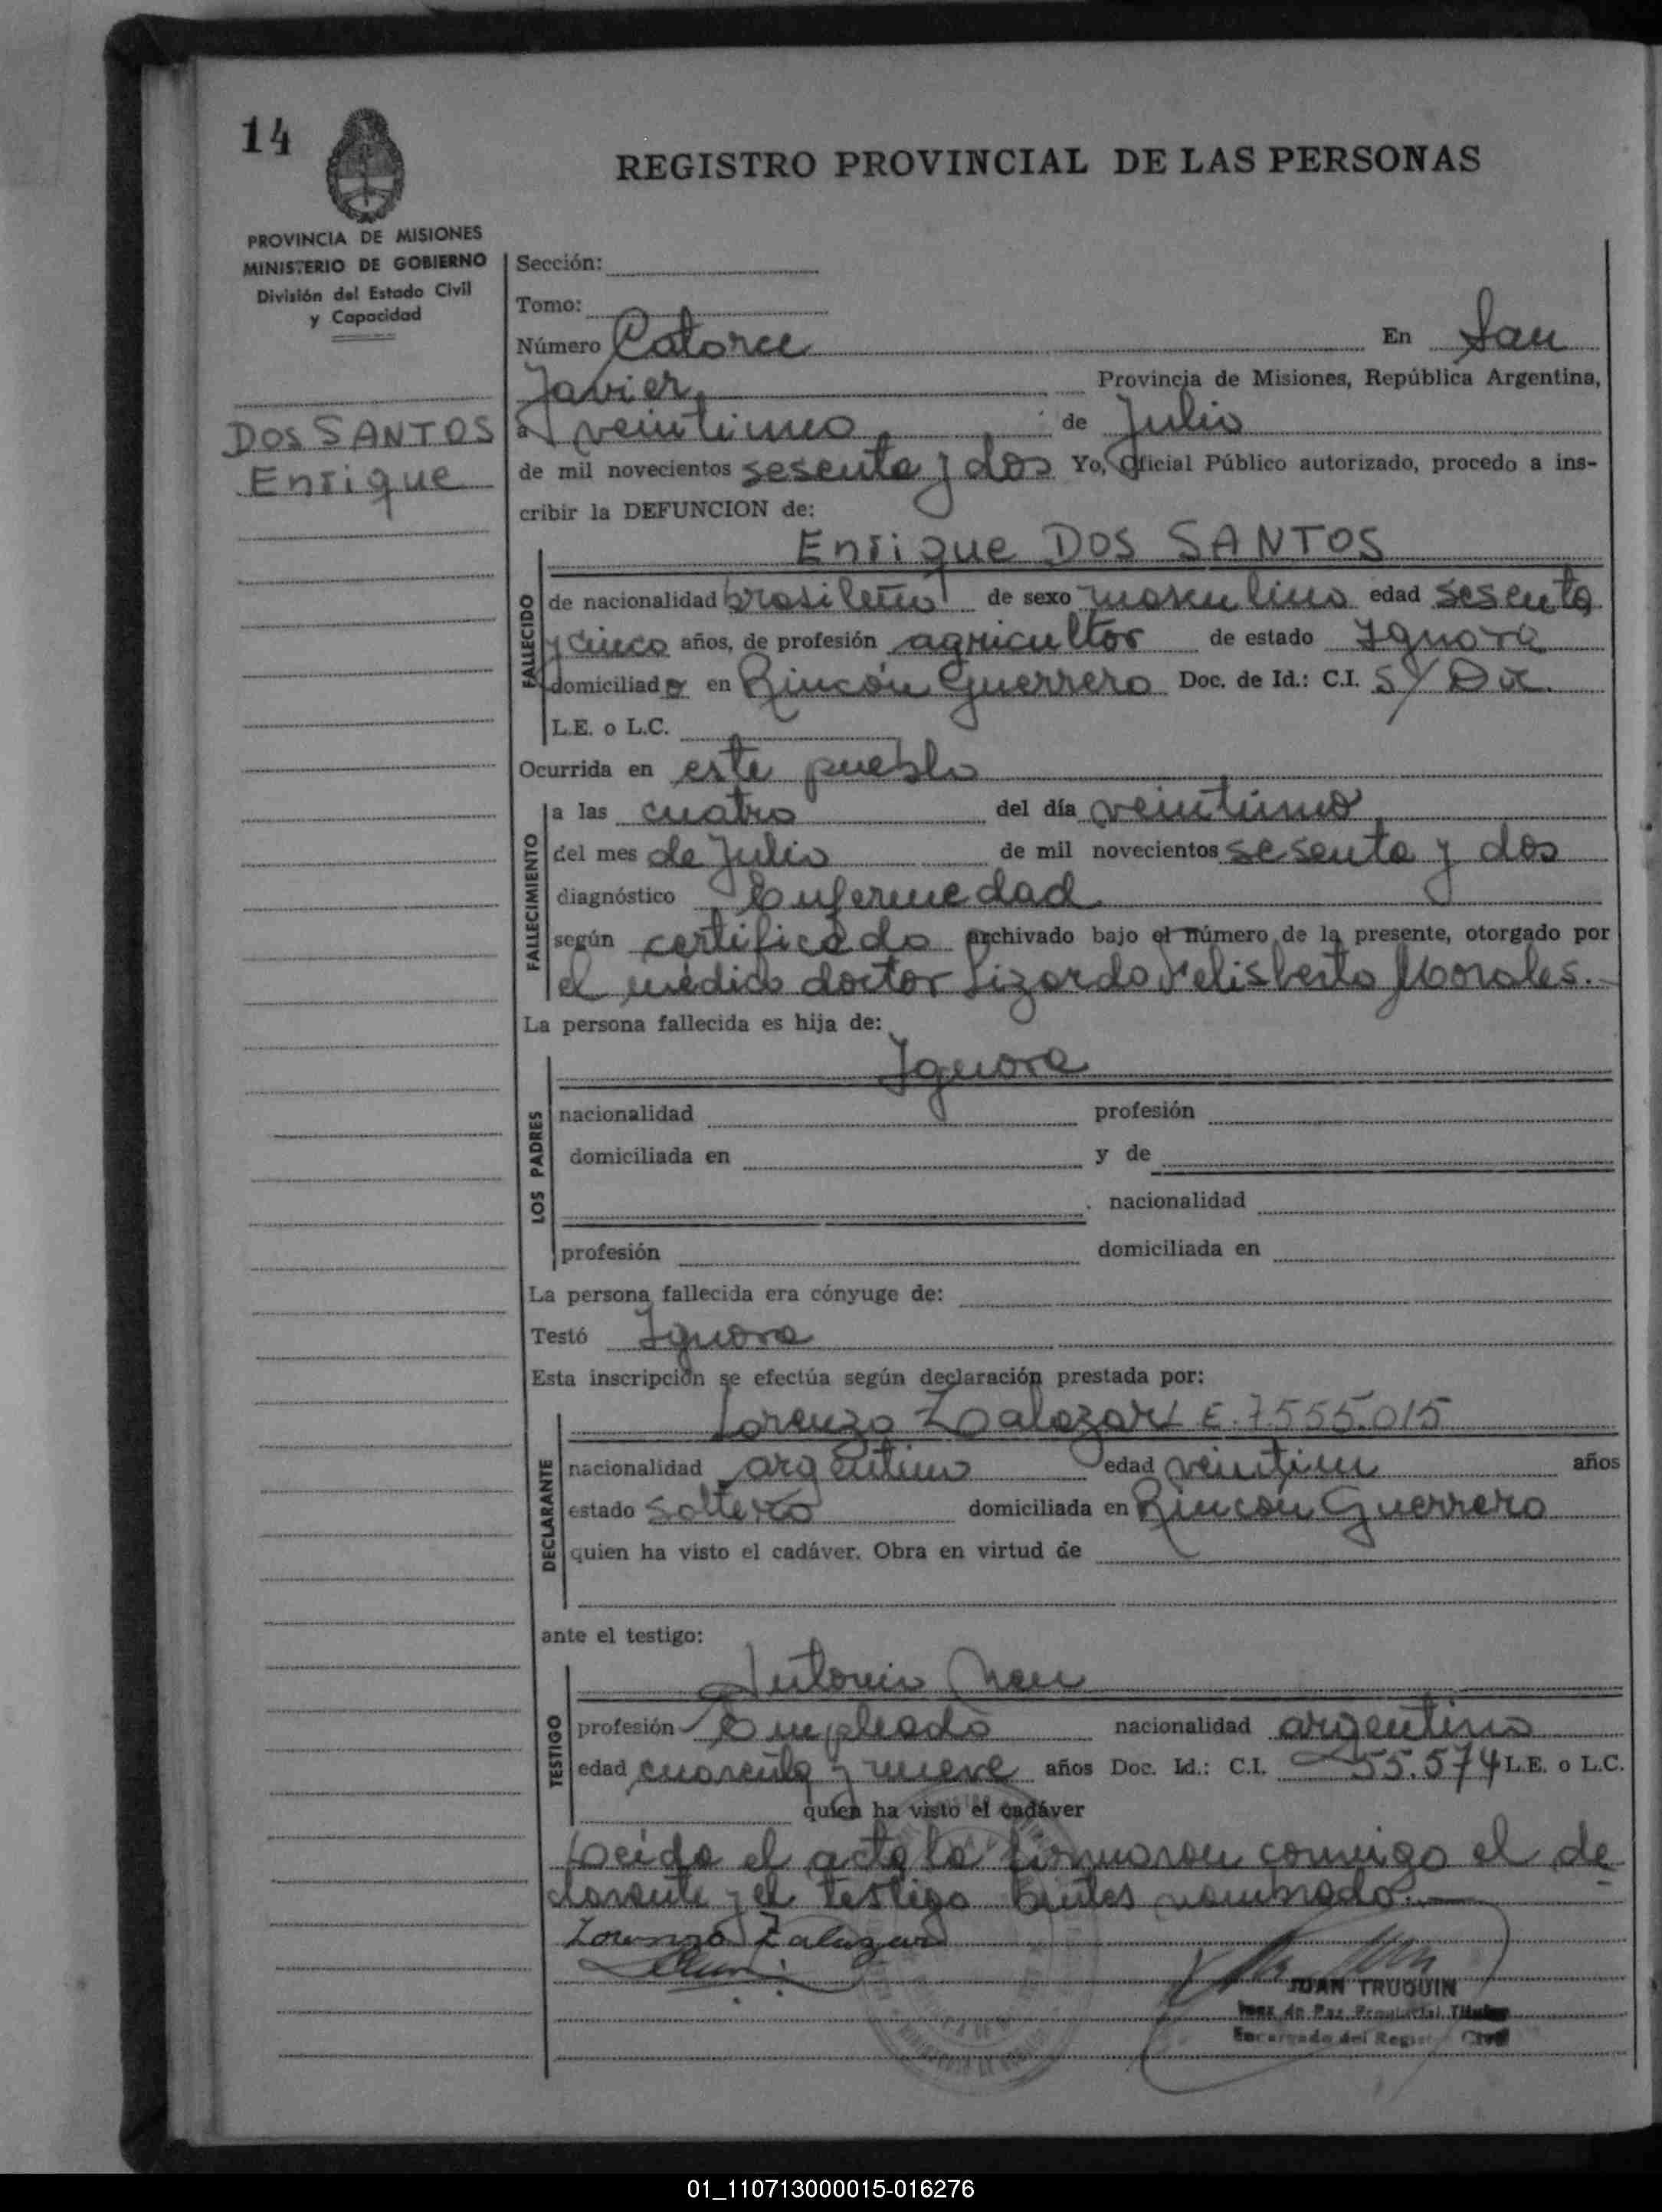 14
REGISTRO PROVINCIAL DE LAS PERSONAS
PROVINCIA DE MISIONES
MINISTERIO DE GOBIERNO
División del Estado Civil
y Capacidad
DOS SANTOS
Enrique
Sección:
Tomo:
Número Catorce En San
Javier, Provincia de Misiones, República Argentina,
a veintiuno de Julio
de mil novecientos sesenta y dos Yo, Oficial Público autorizado, procedo a ins-
cribir la DEFUNCION de:
Enrique DOS SANTOS
FALLECIDO
de nacionalidad brasileño de sexo masculino edad sesenta
y cinco años, de profesión agricultor de estado Ignora
domiciliado en Rincón Guerrero Doc. de Id.: C.I. S/ Doc.
L.E. o L.C.
Ocurrida en este pueblo
FALLECIMIENTO
a las cuatro del día veintiuno
del mes de Julio de mil novecientos sesenta y dos
diagnóstico Enfermedad
según certificado archivado bajo el número de la presente, otorgado por
el médico doctor Lizardo Felisberto Morales.
La persona fallecida es hija de:
Ignora
LOS PADRES
nacionalidad profesión
domiciliada en y de
nacionalidad
profesión domiciliada en
La persona fallecida era cónyuge de:
Testó Ignora
Esta inscripción se efectúa según declaración prestada por:
Lorenzo Zalazar L E. 7.555.015
DECLARANTE
nacionalidad argentino edad veintiun años
estado soltero domiciliada en Rincón Guerrero
quien ha visto el cadáver. Obra en virtud de
ante el testigo:
Antonio
TESTIGO
profesión Empleado nacionalidad argentino
edad cuarenta y nueve años Doc. Id.: C.I. 55.574 L.E. o L.C.
quien ha visto el cadáver
Leida el acta la firmaron conmigo el de
clarante y el testigo antes nombrado.
Lorenzo Zalazar
JUAN TRUQUIN
Juez de Paz Provincial Titular
Encargado del Registro Civil
01_110713000015-016276